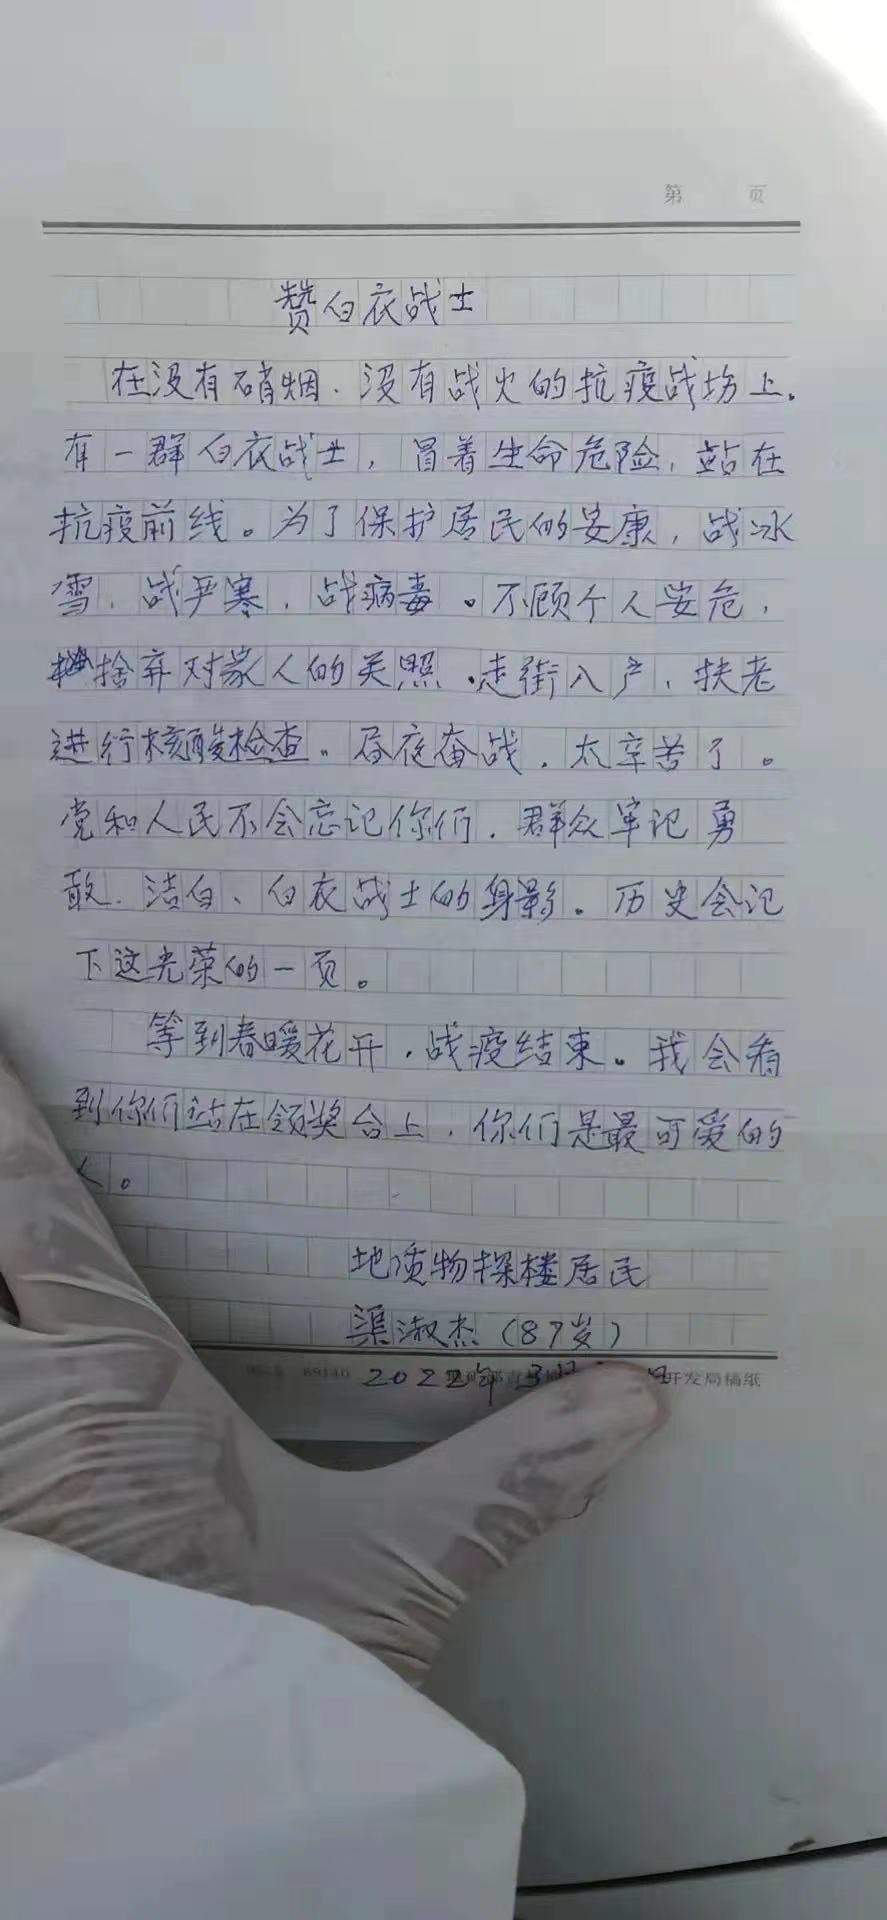 第 页
赞白衣战士
在没有硝烟、没有战火的抗疫战场上。
有一群白衣战士，冒着生命危险，站在
抗疫前线。为了保护居民的安康，战冰
雪、战严寒、战病毒。不顾个人安危，
捨弃对家人的关照。走街入户、扶老
进行核酸检查。昼夜奋战，太辛苦了。
党和人民不会忘记你们，群众牢记勇
敢、洁白、白衣战士的身影。历史会记
下这光荣的一页。
等到春暖花开，战疫结束。我会看
到你们站在领奖台上，你们是最可爱的
人。
地质物探楼居民
渠淑杰（87岁）
2022年3月 日
开发局稿纸